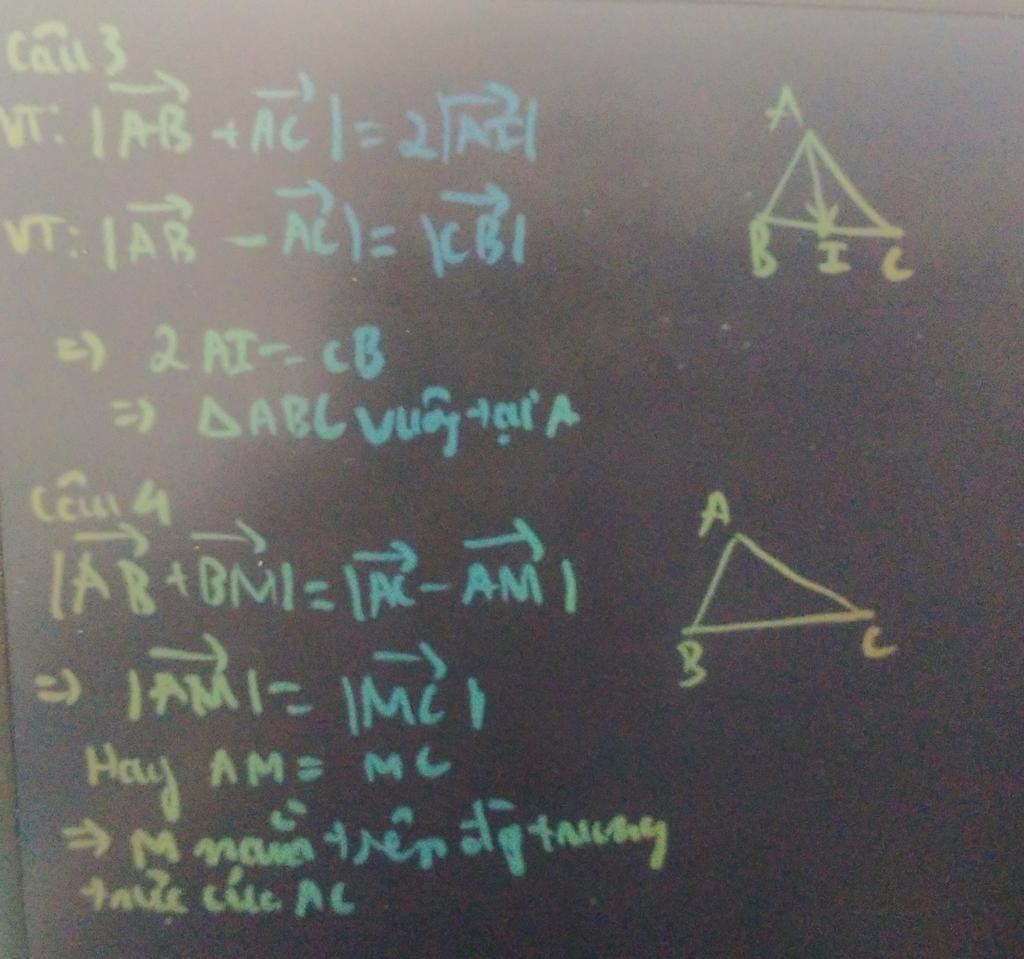 Câu 3
VT: |AB + AC| = 2|AI|
VT: |AB - AC| = |CB|
A
B I C
=> 2 AI = CB
=> ΔABC vuông tại A
Câu 4
|AB + BM| = |AC - AM|
A
B C
=> |AM| = |MC|
Hay AM = MC
=> M nằm trên đg trung
trực của AC